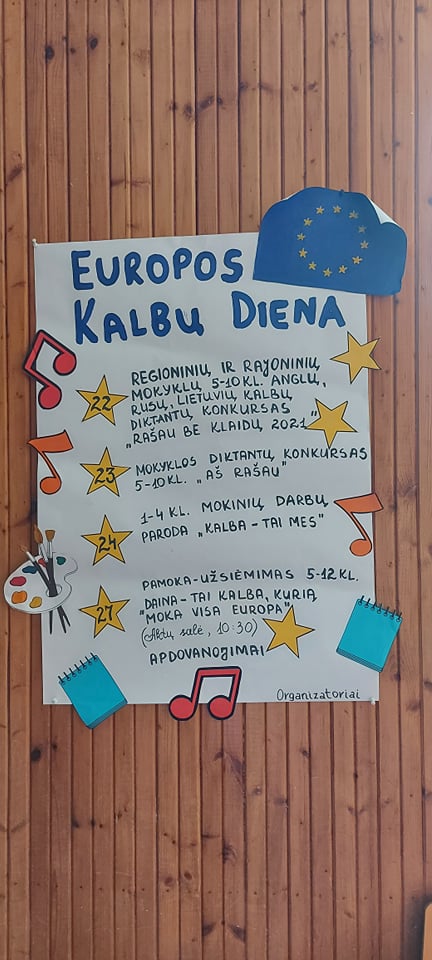 EUROPOS
KALBŲ DIENA
22
REGIONINIŲ IR RAJONINIŲ
MOKYKLŲ 5-10 KL. ANGLŲ,
RUSŲ, LIETUVIŲ KALBŲ
DIKTANTŲ KONKURSAS
„RAŠAU BE KLAIDŲ 2021"
23
MOKYKLOS DIKTANTŲ KONKURSAS
5-10 KL. „AŠ RAŠAU"
24
1-4 KL. MOKINIŲ DARBŲ
PARODA „KALBA - TAI MES"
27
PAMOKA-UŽSIĖMIMAS 5-12 KL.
„DAINA - TAI KALBA, KURIĄ
MOKA VISA EUROPA"
(Aktų salė, 10:30)
APDOVANOJIMAI
Organizatoriai